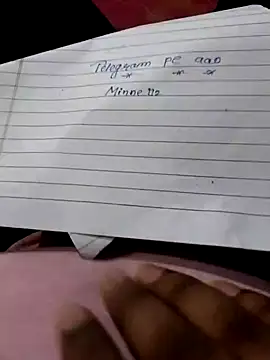 Telegram pe aao
Minne112